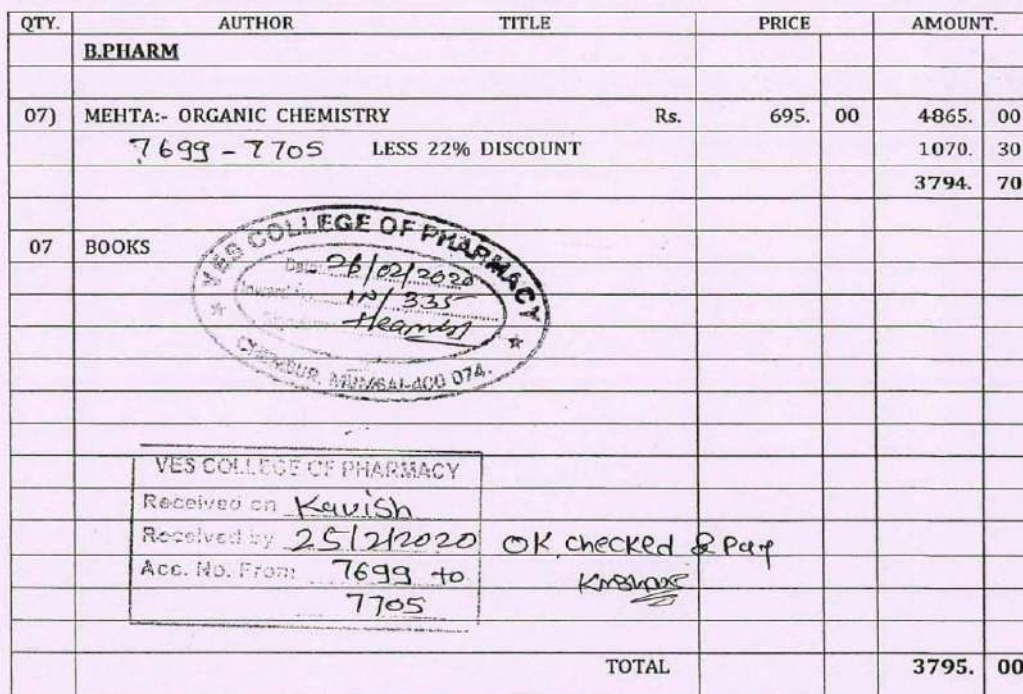 QTY. AUTHOR TITLE PRICE AMOUNT.
B.PHARM
07) MEHTA:- ORGANIC CHEMISTRY Rs. 695. 00 4865. 00
7699 - 7705 LESS 22% DISCOUNT 1070. 30
3794. 70
07 BOOKS
VES COLLEGE OF PHARMACY
Date: 26/02/2020
IN/335
CHEMBUR, MUMBAI-400 074.
VES COLLEGE OF PHARMACY
Received on Kavish
Received by 25/2/2020
OK checked & Pay
Acc. No. From 7699 to
7705
TOTAL 3795. 00